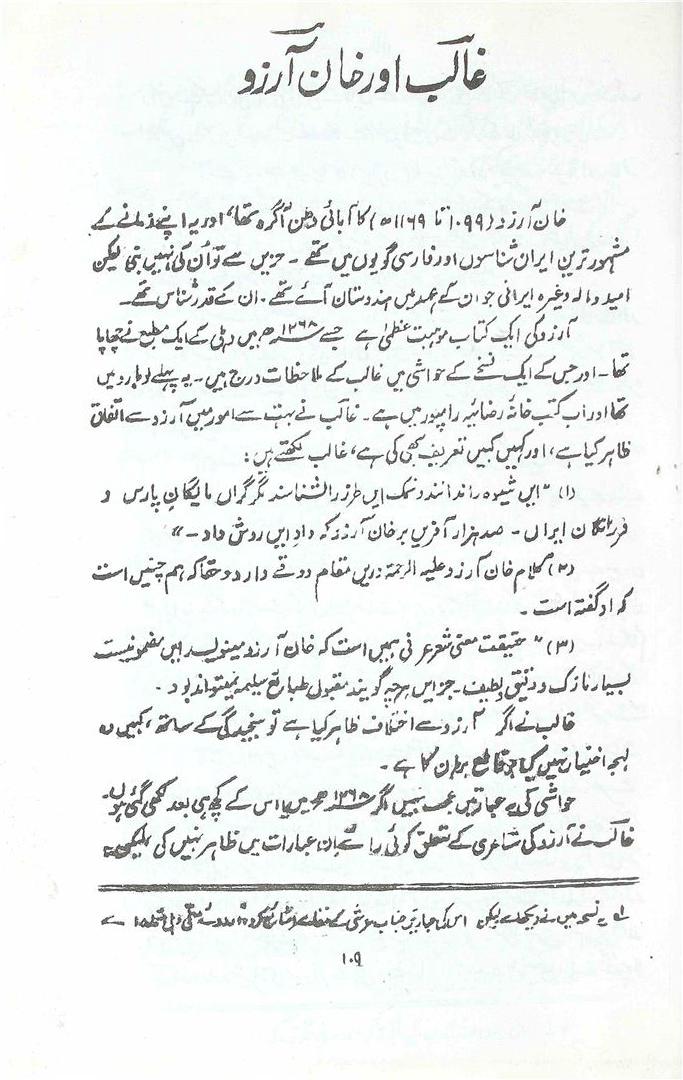 غالب اور خان آرزو
خان آرزو (۱۰۹۹ تا ۱۱۶۹ھ) کا آبائی وطن آگرہ تھا، اور یہ اپنے زمانے کے
مشہور ترین ایران شناسوں اور فارسی گویوں میں تھے ۔ حزیں سے تو اُن کی نہیں بنی لیکن
امید والہ وغیرہ ایرانی جو ان کے عہد میں ہندوستان آئے تھے ، ان کے قدر شناس تھے ۔
آرزو کی ایک کتاب موہبت عظمیٰ ہے جسے ۱۲۶۸ھ میں دہلی کے ایک مطبع نے چھاپا
تھا ۔ اور جس کے ایک نسخے کے حواشی میں غالب کے ملاحظات درج ہیں ۔ یہ پہلے لوہارو میں
تھا اور اب کتب خانۂ رضائیہ رامپور میں ہے ۔ غالب نے بہت سے امور میں آرزو سے اتفاق
ظاہر کیا ہے ، اور کہیں کہیں تعریف بھی کی ہے ، غالب لکھتے ہیں :
(۱) "ایں شیوہ را نداند و نمک ایں طرز را نشناسد مگر گراں مایگان پارس و
فرزانگان ایران ۔ صد ہزار آفریں بر خان آرزو کہ داد ایں روش داد ۔"
(۲) کلام خان آرزو علیہ الرحمۃ دریں مقام ذوقے دارد و حقا کہ ہم چنیں است
کہ او گفتہ است ۔
(۳) "حقیقت معنی شعر عرفی ہمیں است کہ خان آرزو مینویسد ایں مضمونیست
بسیار نازک و دقیق و لطیف ۔ جز ایں ہرچہ گویند مقبول طبائع سلیمہ نمیتواند بود ۔
غالب نے اگر آرزو سے اختلاف ظاہر کیا ہے تو سنجیدگی کے ساتھ ، کہیں وہ
لہجہ اختیار نہیں کیا جو قاطع برہان کا ہے ۔
حواشی کی یہ عبارتیں عجب نہیں اگر ۱۲۶۸ھ میں یا اس کے کچھ ہی بعد لکھی گئی ہوں ۔
غالب نے آرزو کی شاعری کے متعلق کوئی رائے ان عبارات میں ظاہر نہیں کی لیکن یہ
لے یہ نسخہ میں نے دیکھا ہے لیکن اس کی عبارتیں جناب عرشی کے مقالے
۱۰۹